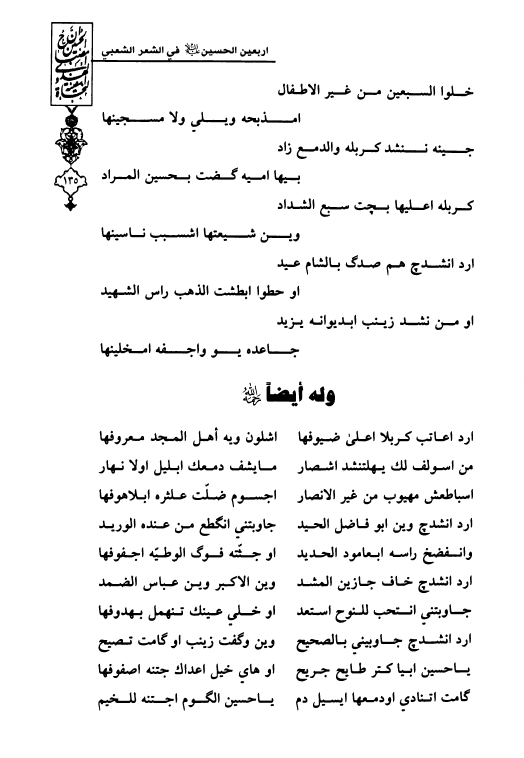 اربعين الحسين عليه السلام في الشعر الشعبي
١٣٥
خلوا السبعين من غير الاطفال
امذبحه ويلي ولا مسجينها
جينه ننشد كربله والدمع زاد
بيها اميه گضت بحسين المراد
كربله اعليها بچت سبع الشداد
وين شيعتها اشسبب ناسينها
ارد انشدچ هم صدگ بالشام عيد
او حطوا ابطشت الذهب راس الشهيد
او من نشد زينب ابديوانه يزيد
جاعده يو واجفه امخلينها
وله أيضاً رحمه الله
ارد اعاتب كربلا اعلىٰ ضيوفها اشلون ويه أهل المجد معروفها
من اسولف لك يهلتنشد اشصار مايشف دمعك ابليل اولا نهار
اسباطعش مهيوب من غير الانصار اجسوم ضلّت عثره ابلاهوفها
ارد انشدچ وين ابو فاضل الحيد جاوبتني انگطع من عنده الوريد
وانفضخ راسه ابعامود الحديد او جثّته فوگ الوطيّه اجفوفها
ارد انشدچ خاف جازين المشد وين الاكبر وين عباس الضمد
جاوبتني انتحب للنوح استعد او خلي عينك تنهمل بهدوفها
ارد انشدچ جاوبيني بالصحيح وين وگفت زينب او گامت تصيح
ياحسين ابيا كتر طايح جريح او هاي خيل اعداك جتنه اصفوفها
گامت اتنادي اودمعها ايسيل دم ياحسين الگوم اجتنه للخيم